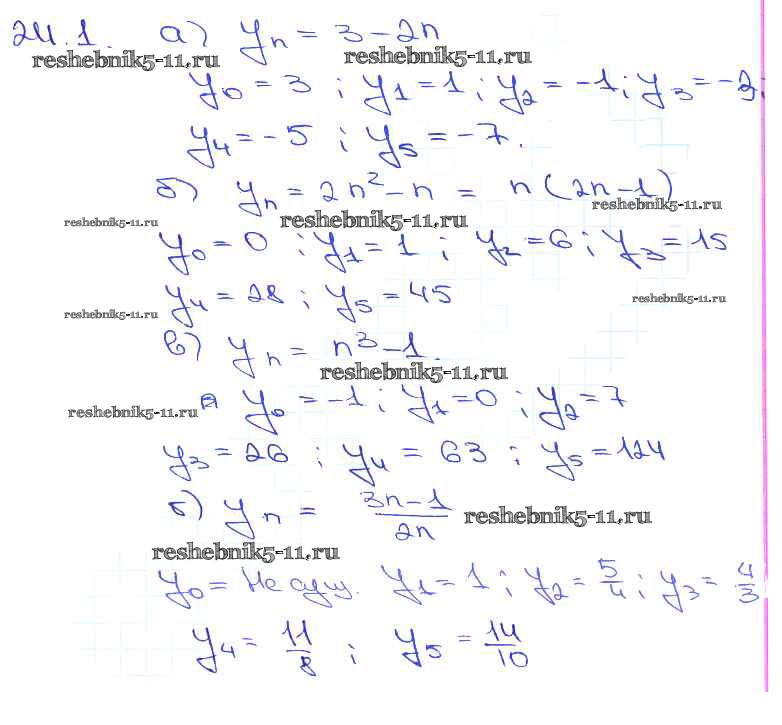 24.1. а) yₙ = 3 - 2n
reshebnik5-11.ru reshebnik5-11.ru
y₀ = 3 ; y₁ = 1 ; y₂ = -1 ; y₃ = -3;
y₄ = -5 ; y₅ = -7.
б) yₙ = 2n² - n = n(2n-1)
reshebnik5-11.ru reshebnik5-11.ru reshebnik5-11.ru
y₀ = 0 ; y₁ = 1 ; y₂ = 6 ; y₃ = 15
y₄ = 28 ; y₅ = 45
reshebnik5-11.ru reshebnik5-11.ru
в) yₙ = n³ - 1.
reshebnik5-11.ru
reshebnik5-11.ru y₀ = -1 ; y₁ = 0 ; y₂ = 7
y₃ = 26 ; y₄ = 63 ; y₅ = 124
г) yₙ = (3n-1)/(2n) reshebnik5-11.ru
reshebnik5-11.ru
y₀ = не сущ. y₁ = 1 ; y₂ = 5/4 ; y₃ = 4/3
y₄ = 11/8 ; y₅ = 14/10